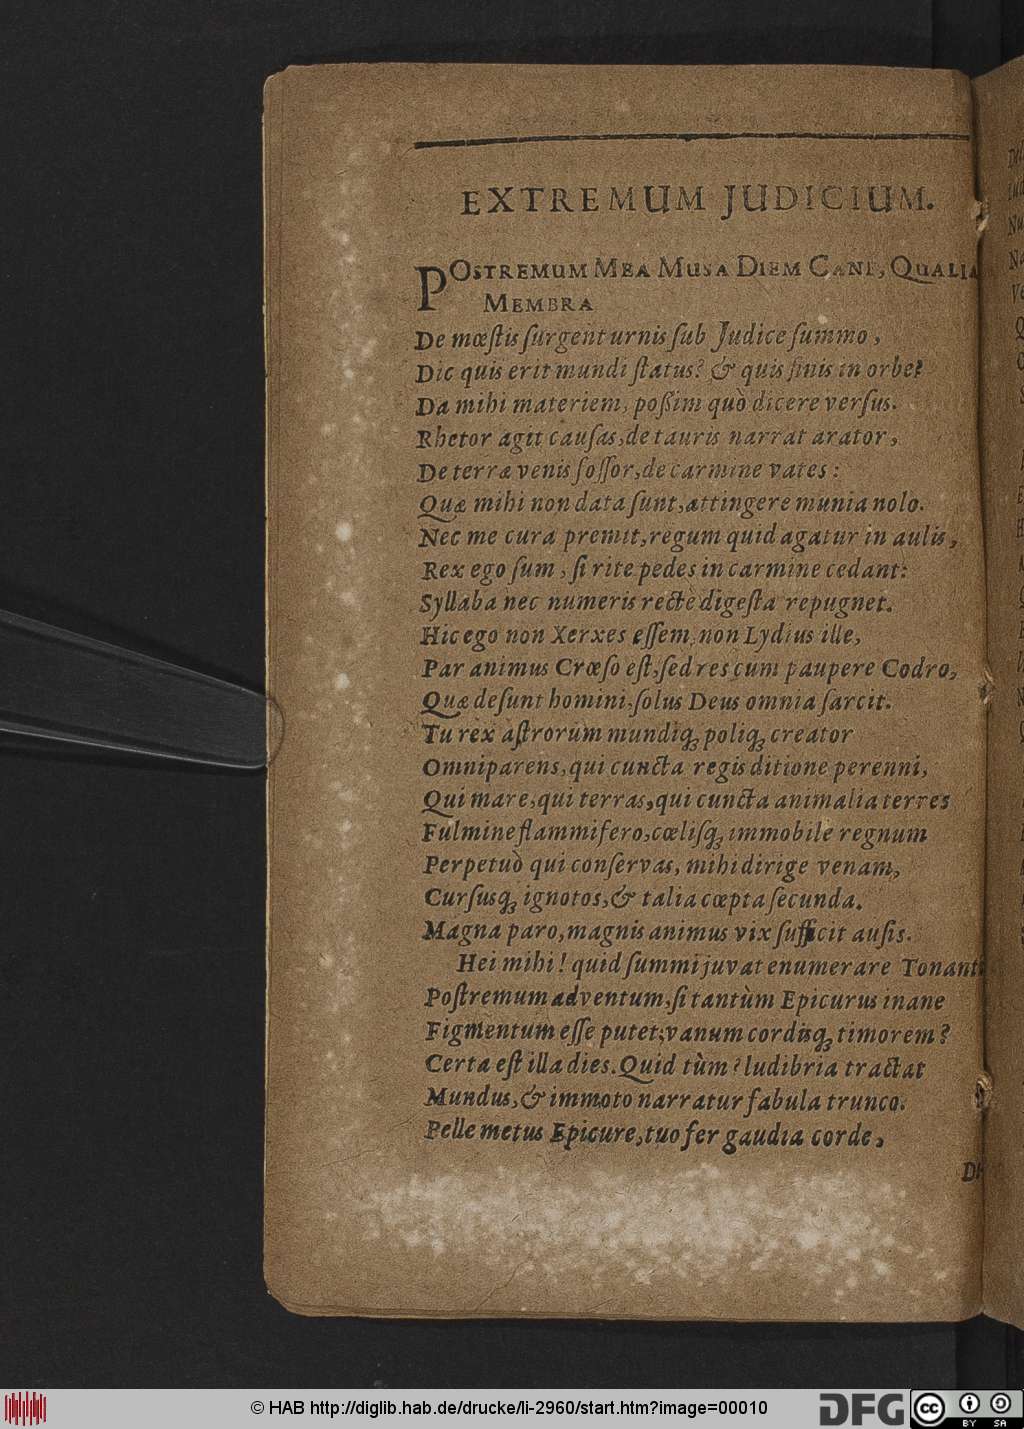 EXTREMUM JUDICIUM.
POSTREMUM MEA MUSA DIEM CANE, QUALIA
MEMBRA
De mœſtis ſurgent urnis ſub Judice ſummo,
Dic quis erit mundi ſtatus? & quis finis in orbe?
Da mihi materiem, poßim quò dicere verſus.
Rhetor agit cauſas, de tauris narrat arator,
De terræ venis foſſor, de carmine vates:
Quæ mihi non data ſunt, attingere munia nolo.
Nec me cura premit, regum quid agatur in aulis,
Rex ego ſum, ſi rite pedes in carmine cedant:
Syllaba nec numeris rectè digeſta repugnet.
Hic ego non Xerxes eſſem, non Lydius ille,
Par animus Crœſo eſt, ſed res cum paupere Codro,
Quæ deſunt homini, ſolus Deus omnia ſarcit.
Tu rex aſtrorum mundiq́; poliq́; creator
Omniparens, qui cuncta regis ditione perenni,
Qui mare, qui terras, qui cuncta animalia terres
Fulmine flammifero, cœliſq́; immobile regnum
Perpetuò qui conſervas, mihi dirige venam,
Curſusq́; ignotos, & talia cœpta ſecunda.
Magna paro, magnis animus vix ſufficit auſis.
Hei mihi! quid ſummi juvat enumerare Tonanti
Poſtremum adventum, ſi tantùm Epicurus inane
Figmentum eſſe putet, vanum cordisq́; timorem?
Certa eſt illa dies. Quid tùm? ludibria tractat
Mundus, & immoto narratur fabula trunco.
Pelle metus Epicure, tuo fer gaudia corde,
© HAB http://diglib.hab.de/drucke/li-2960/start.htm?image=00010
DFG
cc BY SA